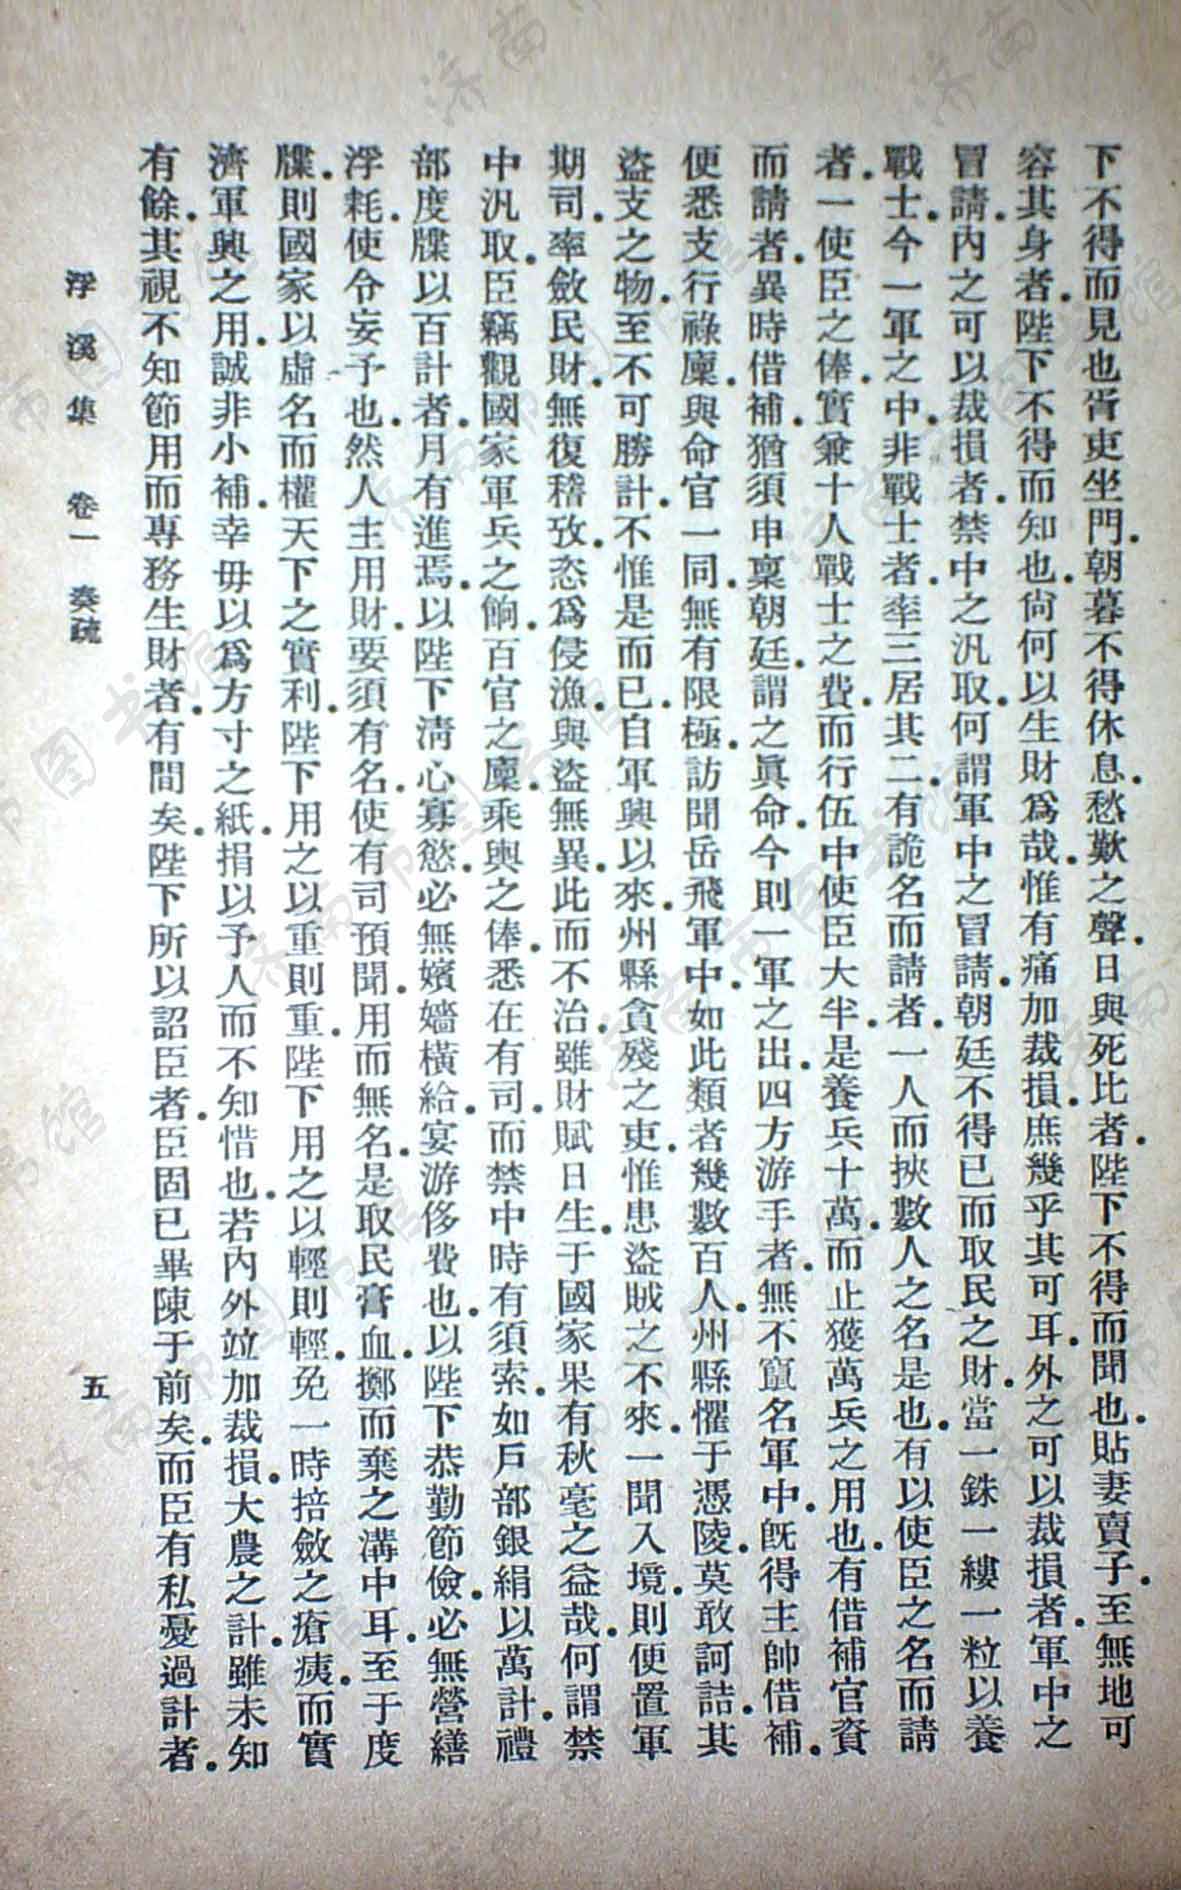 下不得而見也胥吏坐門.朝暮不得休息.愁歎之聲.日與死比者.陛下不得而聞也.貼妻賣子.至無地可
容其身者.陛下不得而知也.尙何以生財爲哉.惟有痛加裁損.庶幾乎其可耳.外之可以裁損者.軍中之
冒請.內之可以裁損者.禁中之汎取.何謂軍中之冒請.朝廷不得已而取民之財.當一銖一縷一粒以養
戰士.今一軍之中.非戰士者.率三居其二.有詭名而請者.一人而挾數人之名是也.有以使臣之名而請
者.一使臣之俸.實兼十人戰士之費.而行伍中使臣大半.是養兵十萬.而止獲萬兵之用也.有借補官資
而請者.異時借補.猶須申稟朝廷.謂之眞命.今則一軍之出.四方游手者.無不竄名軍中.旣得主帥借補.
便悉支行祿廩.與命官一同.無有限極.訪聞岳飛軍中.如此類者幾數百人.州縣懼于憑陵.莫敢訶詰.其
盜支之物.至不可勝計.不惟是而已.自軍興以來.州縣貪殘之吏.惟患盜賊之不來.一聞入境.則便置軍
期司.率斂民財.無復稽攷.恣爲侵漁.與盜無異.此而不治.雖財賦日生.于國家果有秋毫之益哉.何謂禁
中汎取.臣竊觀國家軍兵之餉.百官之廩.乘輿之俸.悉在有司.而禁中時有須索.如戶部銀絹以萬計.禮
部度牒以百計者.月有進焉.以陛下清心寡慾.必無嬪嬙橫給.宴游侈費也.以陛下恭勤節儉.必無營繕
浮耗.使令妄予也.然人主用財.要須有名.使有司預聞.用而無名.是取民膏血.擲而棄之溝中耳.至于度
牒.則國家以虛名而權天下之實利.陛下用之以重則重.陛下用之以輕則輕.免一時掊斂之瘡痍.而實
濟軍興之用.誠非小補.幸毋以爲方寸之紙.捐以予人而不知惜也.若內外竝加裁損.大農之計.雖未知
有餘.其視不知節用而專務生財者.有間矣.陛下所以詔臣者.臣固已畢陳于前矣.而臣有私憂過計者.
浮溪集 卷一 奏疏 五